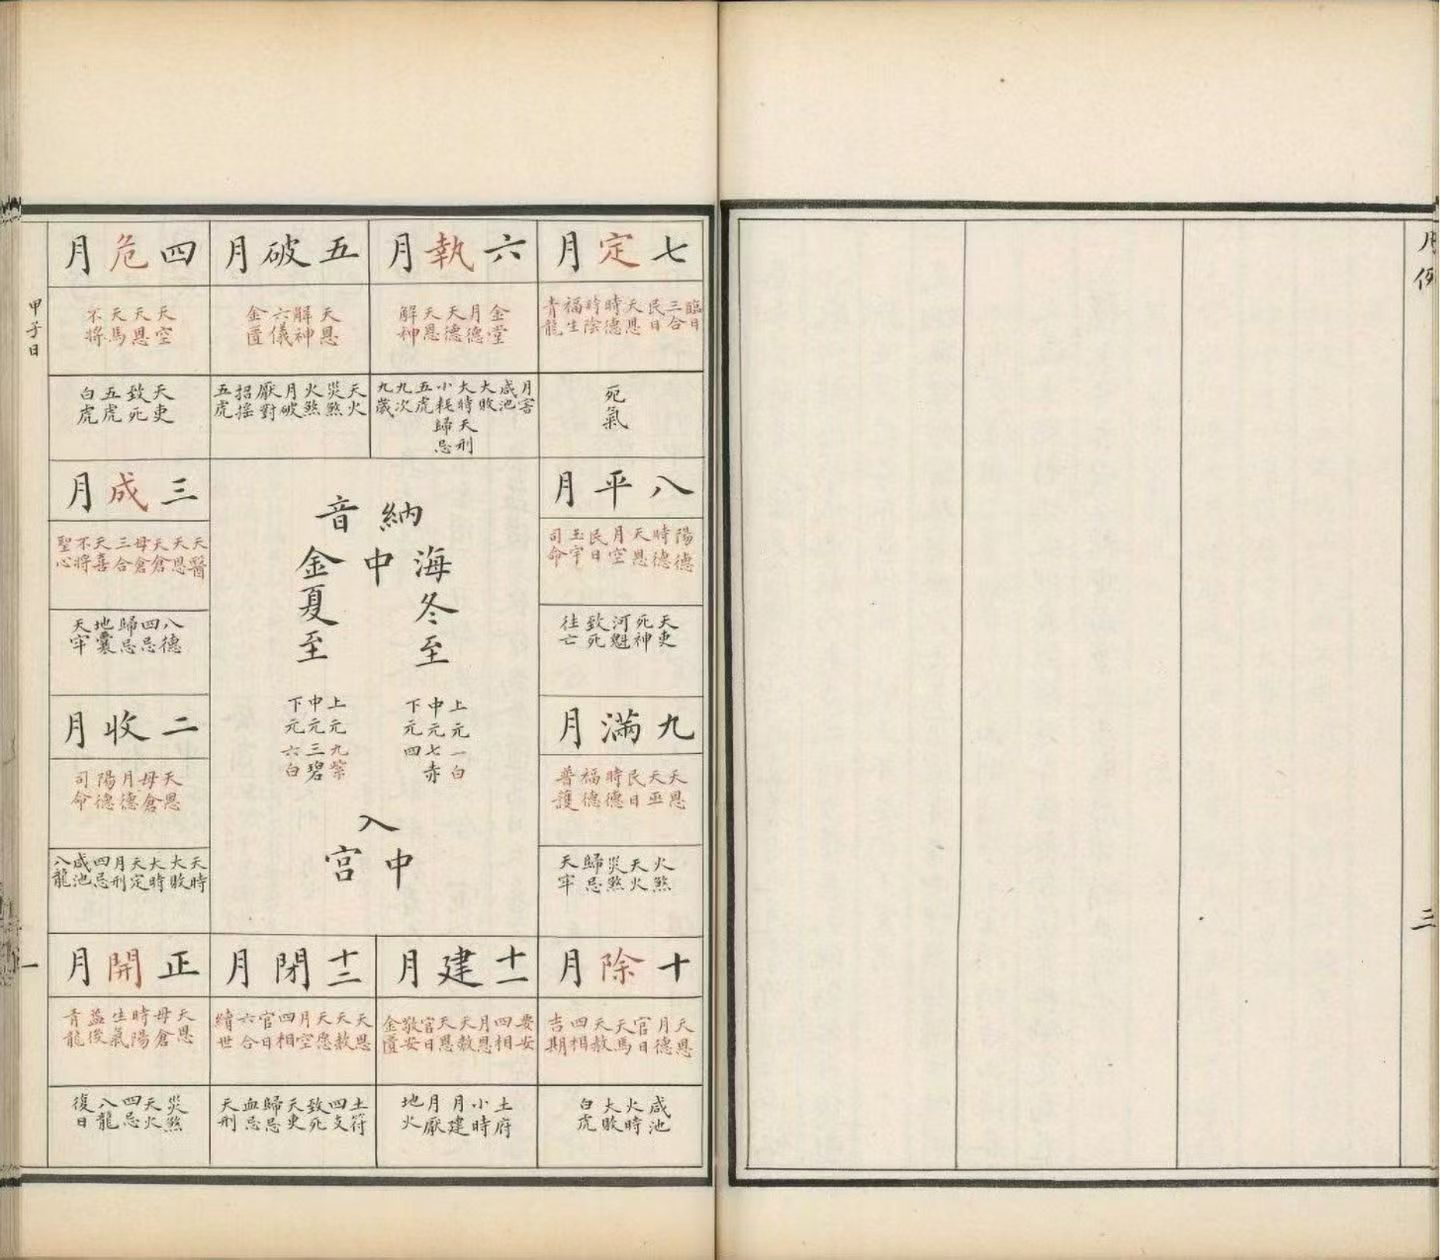 月例
三
七定月
臨日 三合 民日 天恩 時德 時陰 福生 青龍
死氣
六執月
金堂 月德 天德 天恩 解神
月害 咸池 大敗 大時 小耗 五虎 九次 九歲 天刑 歸忌
五破月
天恩 解神 六儀 金匱
天火 災煞 火煞 月破 厭對 招搖 五虎
四危月
天空 天恩 天馬 不將
天吏 致死 五虎 白虎
八平月
陽德 時德 天恩 月空 民日 玉宇 司命
天吏 死神 河魁 致死 往亡
三成月
天醫 天恩 天倉 母倉 三合 天喜 不將 聖心
八德 四忌 歸忌 地囊 天牢
納音
海中金
冬至
上元一白
中元七赤
下元四
夏至
上元九紫
中元三碧
下元六白
入中宮
九滿月
天恩 天巫 民日 時德 福德 普護
火煞 天火 災煞 歸忌 天牢
二收月
天恩 母倉 月德 陽德 司命
天時 大敗 大時 天定 月刑 四忌 咸池 八龍
十除月
天恩 月德 官日 天馬 天赦 四相 吉期
咸池 火時 大敗 白虎
十一建月
要安 四相 月恩 天赦 天恩 官日 敬安 金匱
土府 小時 月建 月厭 地火
十二閉月
天恩 天赦 天愿 月空 四相 官日 六合 續世
土符 四支 致死 天吏 歸忌 血忌 天刑
正開月
天恩 母倉 時陽 生氣 益後 青龍
災煞 天火 四忌 八龍 復日
甲子日
一